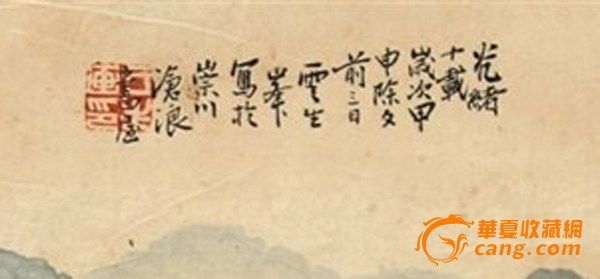 光緒
十載
歲次甲
申除夕
前三日
雲生
峯
寫於
崇川
滄浪
畫屋
華夏收藏網
cang.com